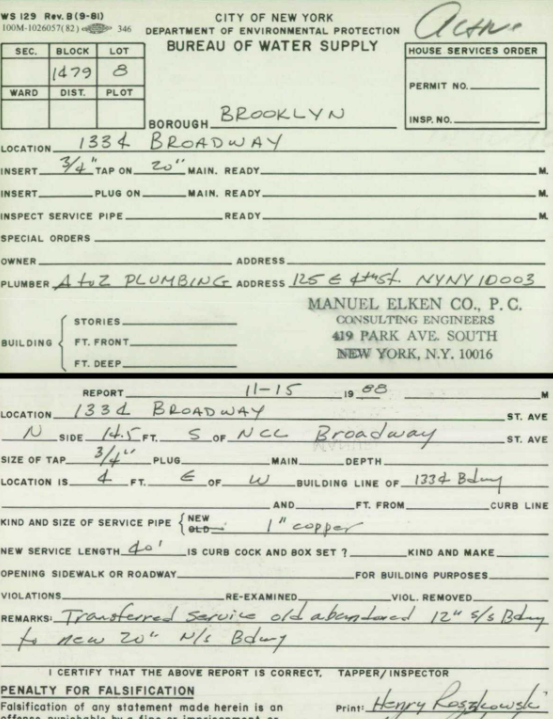 WS 129 Rev. B (9-81)
100M-1026057(82) 346
CITY OF NEW YORK
DEPARTMENT OF ENVIRONMENTAL PROTECTION
BUREAU OF WATER SUPPLY
Active
SEC. BLOCK LOT
1479 8
WARD DIST. PLOT
HOUSE SERVICES ORDER
PERMIT NO.
INSP. NO.
BOROUGH BROOKLYN
LOCATION 1334 BROADWAY
INSERT 3/4" TAP ON 20" MAIN. READY M.
INSERT PLUG ON MAIN. READY M.
INSPECT SERVICE PIPE READY M.
SPECIAL ORDERS
OWNER ADDRESS
PLUMBER A to Z PLUMBING ADDRESS 125 E 4th St. NYNY 10003
MANUEL ELKEN CO., P.C.
CONSULTING ENGINEERS
419 PARK AVE. SOUTH
NEW YORK, N.Y. 10016
BUILDING { STORIES
FT. FRONT
FT. DEEP
REPORT 11-15 19 88 M
LOCATION 1334 BROADWAY ST. AVE
N SIDE 14.5 FT. S OF NCL Broadway ST. AVE
SIZE OF TAP 3/4" PLUG MAIN DEPTH
LOCATION IS 4 FT. E OF W BUILDING LINE OF 1334 Bdwy
AND FT. FROM CURB LINE
KIND AND SIZE OF SERVICE PIPE { NEW OLD 1" copper
NEW SERVICE LENGTH 40' IS CURB COCK AND BOX SET ? KIND AND MAKE
OPENING SIDEWALK OR ROADWAY FOR BUILDING PURPOSES
VIOLATIONS RE-EXAMINED VIOL. REMOVED
REMARKS: Transferred service old abandoned 12" S/S Bdwy
to new 20" N/S Bdwy
I CERTIFY THAT THE ABOVE REPORT IS CORRECT. TAPPER/INSPECTOR
PENALTY FOR FALSIFICATION
Falsification of any statement made herein is an
offense punishable by a fine or imprisonment or
Print: Henry Roszkowski